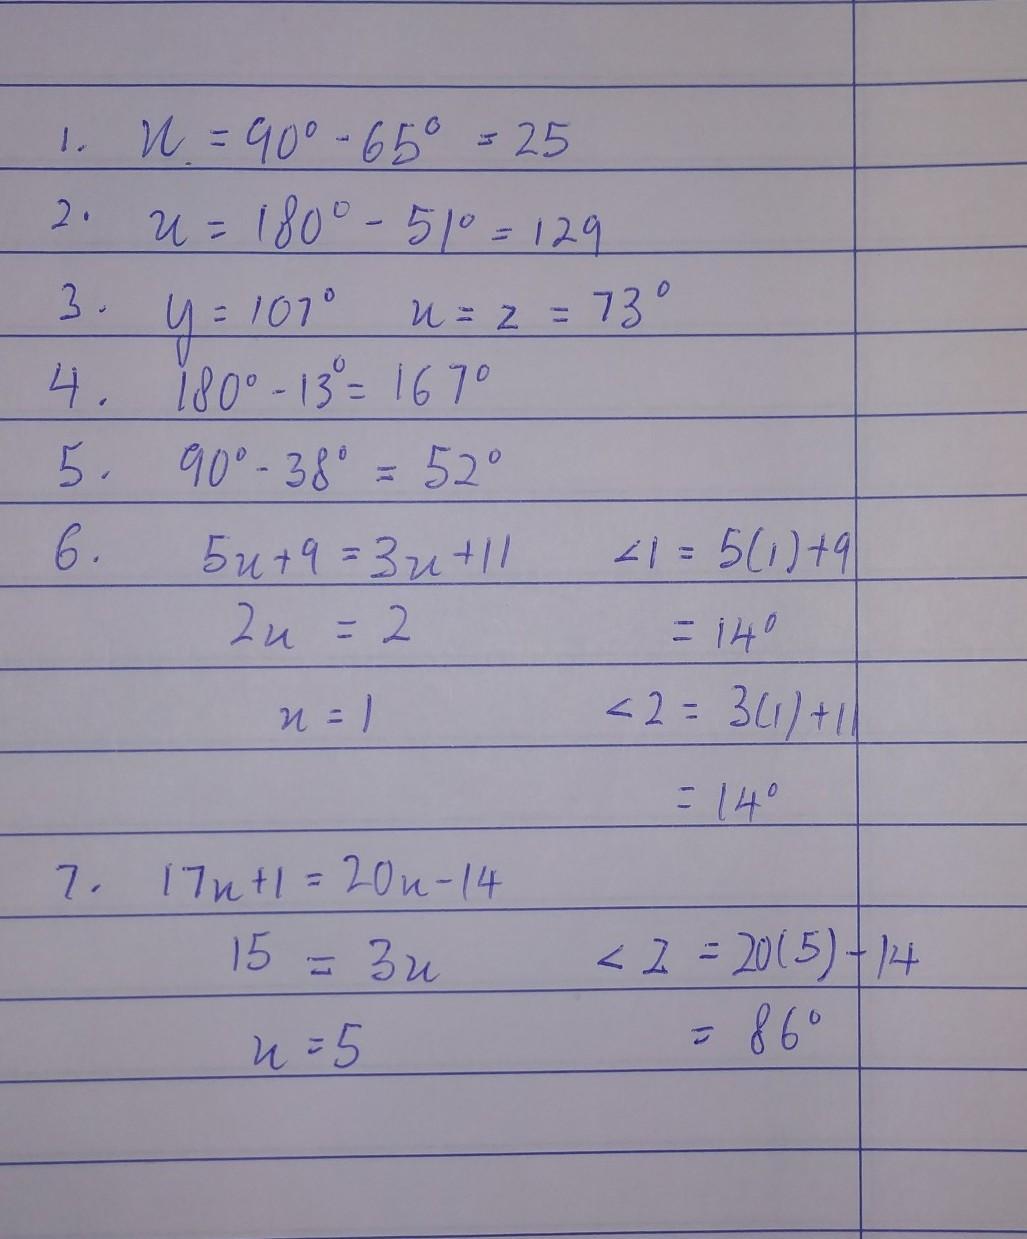 1. x = 90° - 65° = 25
2. x = 180° - 51° = 129
3. y = 107° x = z = 73°
4. 180° - 13° = 167°
5. 90° - 38° = 52°
6. 5x+9 = 3x+11 <1 = 5(1)+9
2x = 2 = 14°
x = 1 <2 = 3(1)+11
= 14°
7. 17x+1 = 20x-14
15 = 3x <Z = 20(5)-14
x = 5 = 86°